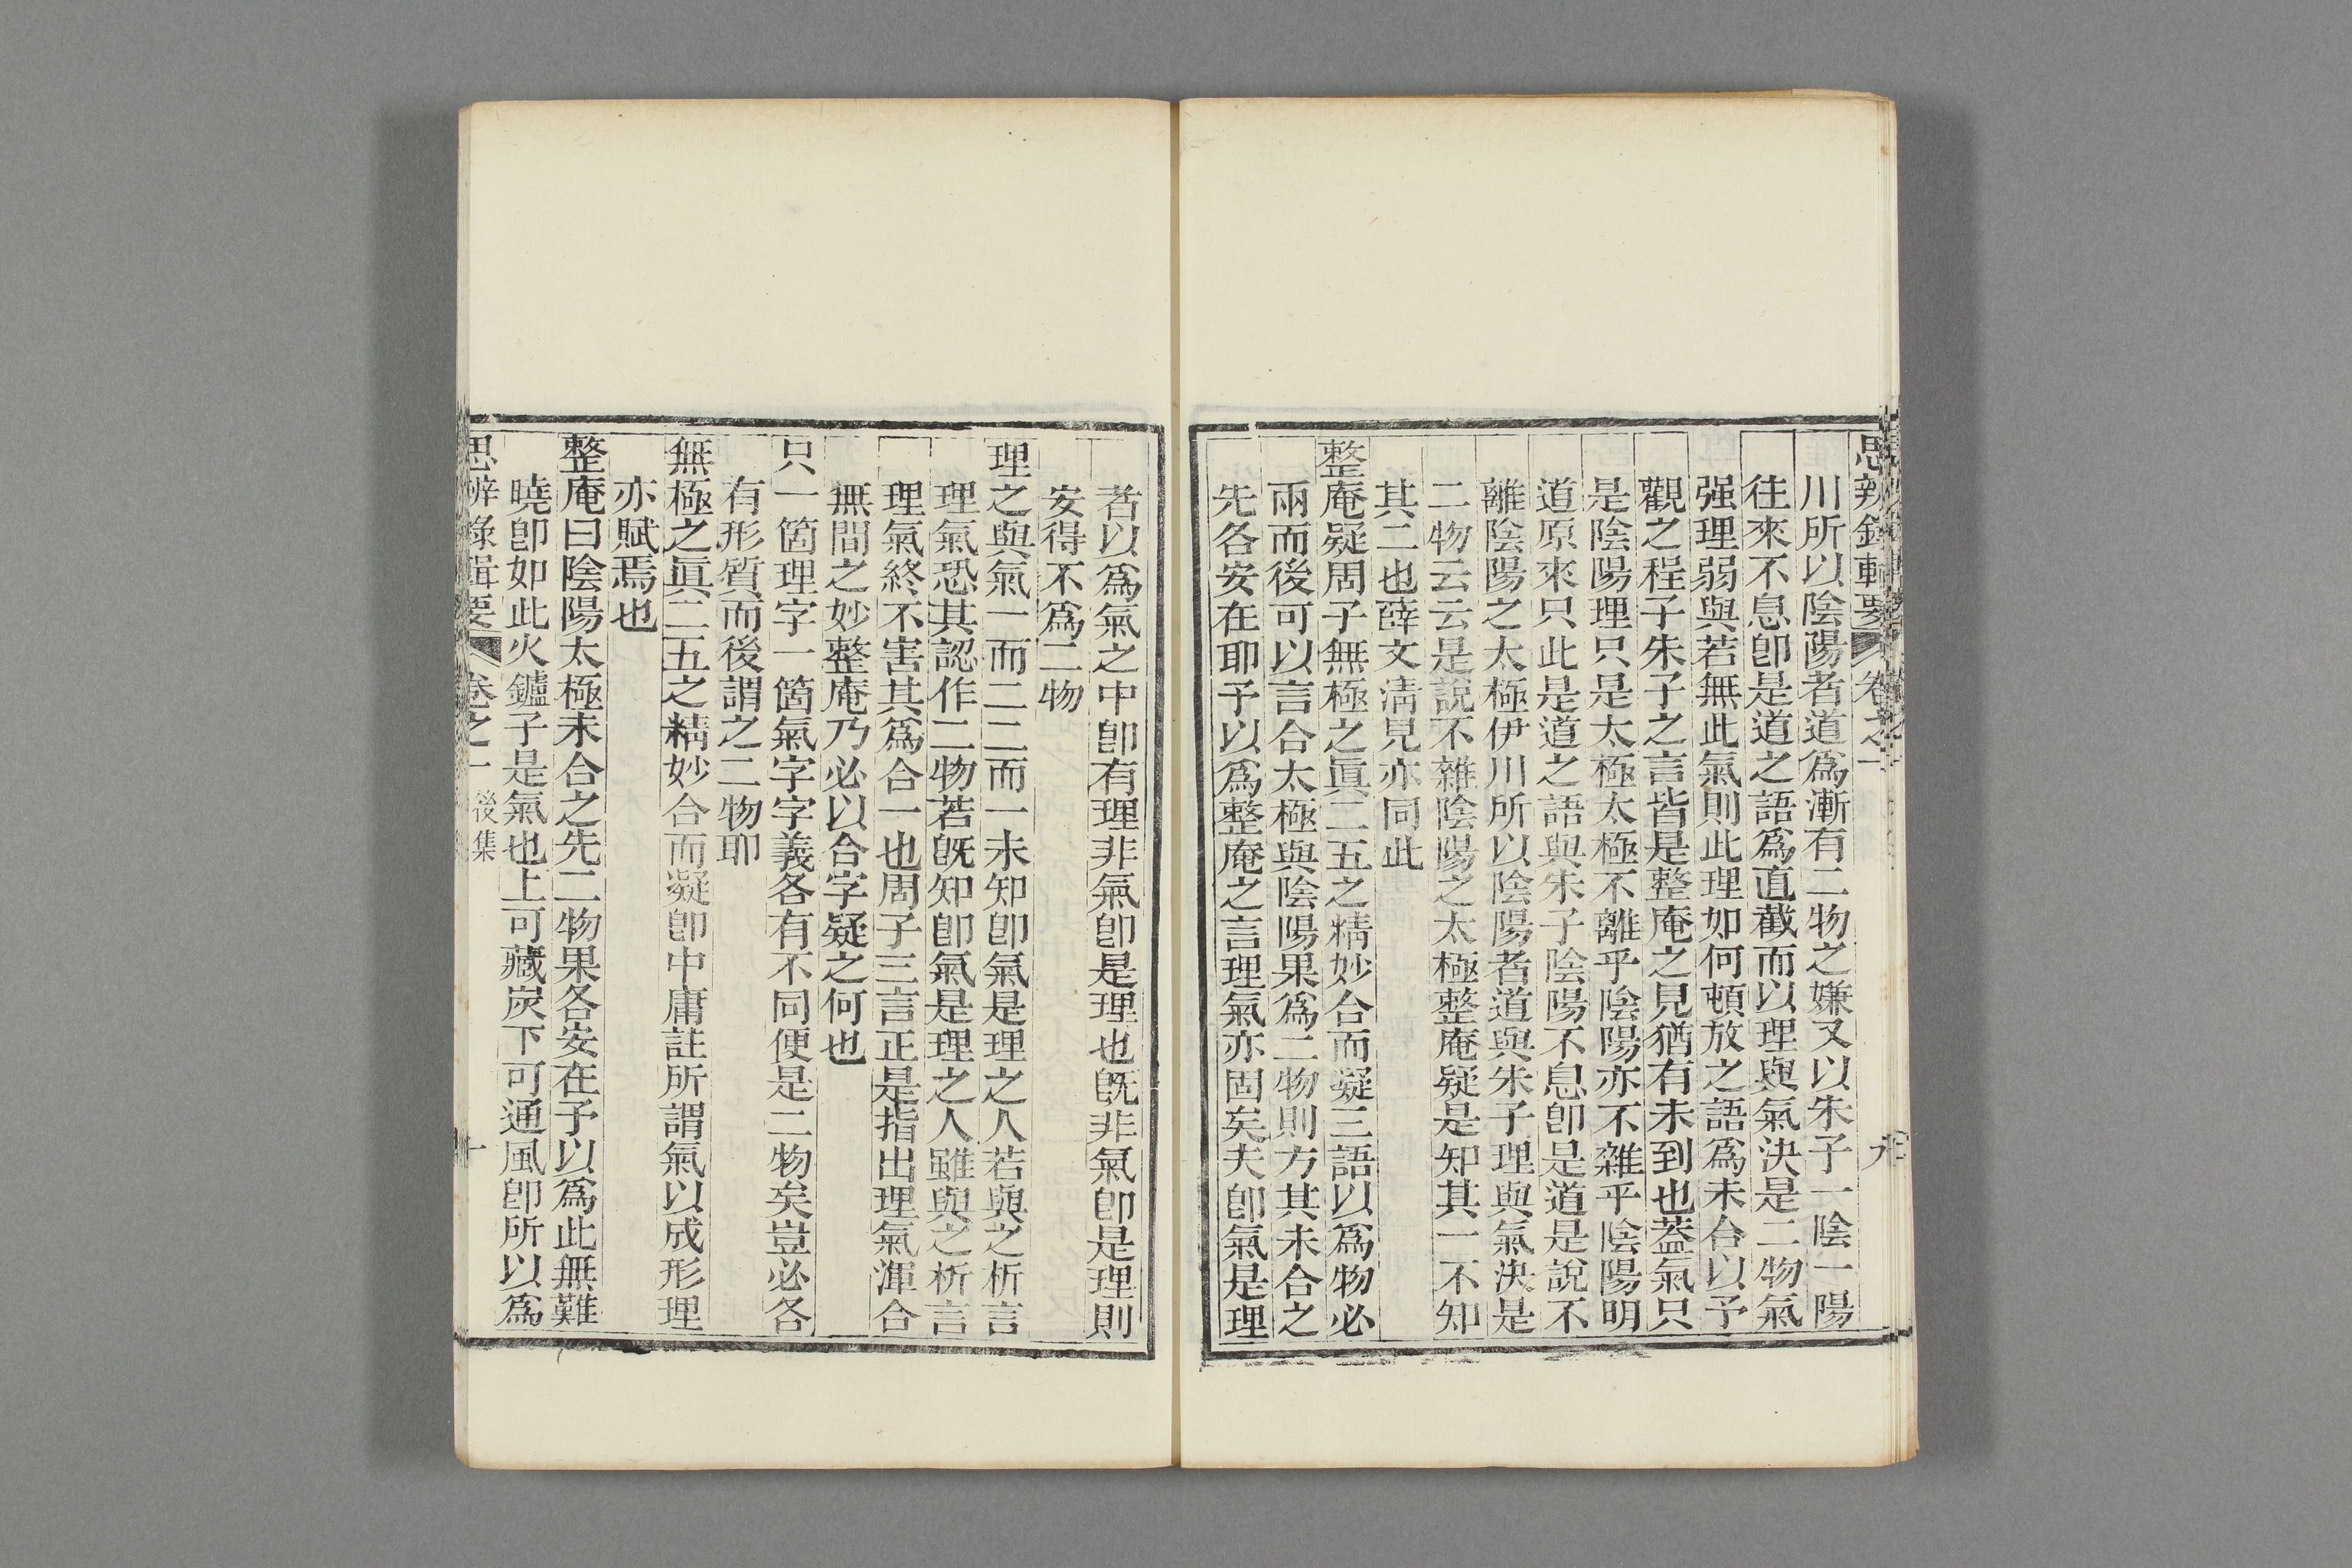 思辨錄輯要 卷之一 九
川所以陰陽者道爲漸有二物之嫌又以朱子一陰一陽
往來不息卽是道之語爲直截而以理與氣決是二物氣
强理弱與若無此氣則此理如何頓放之語爲未合以予
觀之程子朱子之言皆是整庵之見猶有未到也蓋氣只
是陰陽理只是太極太極不離乎陰陽亦不雜乎陰陽明
道原來只此是道之語與朱子陰陽不息卽是道是說不
離陰陽之太極伊川所以陰陽者道與朱子理與氣決是
二物云云是說不雜陰陽之太極整庵疑是知其一不知
其二也薛文淸見亦同此
整庵疑周子無極之眞二五之精妙合而凝三語以爲物必
兩而後可以言合太極與陰陽果爲二物則方其未合之
先各安在耶予以爲整庵之言理氣亦固矣夫卽氣是理
者以爲氣之中卽有理非氣卽是理也旣非氣卽是理則
安得不爲二物
理之與氣一而二二而一未知卽氣是理之人若與之析言
理氣恐其認作二物若旣知卽氣是理之人雖與之析言
理氣終不害其爲合一也周子三言正是指出理氣渾合
無間之妙整庵乃必以合字疑之何也
只一箇理字一箇氣字字義各有不同便是二物矣豈必各
有形質而後謂之二物耶
無極之眞二五之精妙合而凝卽中庸註所謂氣以成形理
亦賦焉也
整庵曰陰陽太極未合之先二物果各安在予以爲此無難
曉卽如此火鑪子是氣也上可藏炭下可通風卽所以爲
思辨錄輯要 卷之一 後集 十